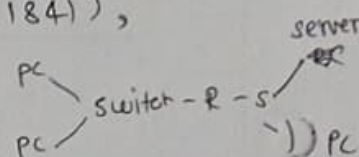 184)),
server
PC
switch - R - S
PC
)) PC